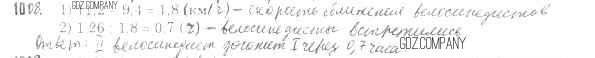 1098. 1) 11,2 - 9,4 = 1,8 (км/ч) - скорость сближения велосипедистов
GDZ.COMPANY
2) 1,26 : 1,8 = 0,7 (ч) - велосипедисты встретились
Ответ: II велосипедист догонит I через 0,7 часа
GDZ.COMPANY